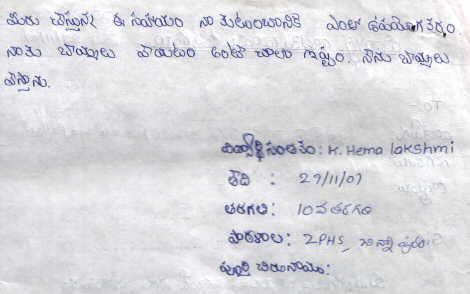 మీరు చేస్తున్న ఈ సహాయం నా కుటుంబానికి ఎంతో ఉపయోగకరం.
నాకు బొమ్మలు వేయటం అంటే చాలా ఇష్టం. నేను బొమ్మలు
వేస్తాను.
విద్యార్థి సంతకం: K. Hema lakshmi
తేది : 29/11/07
తరగతి: 10వ తరగతి
పాఠశాల: ZPHS,
పూర్తి చిరునామా: